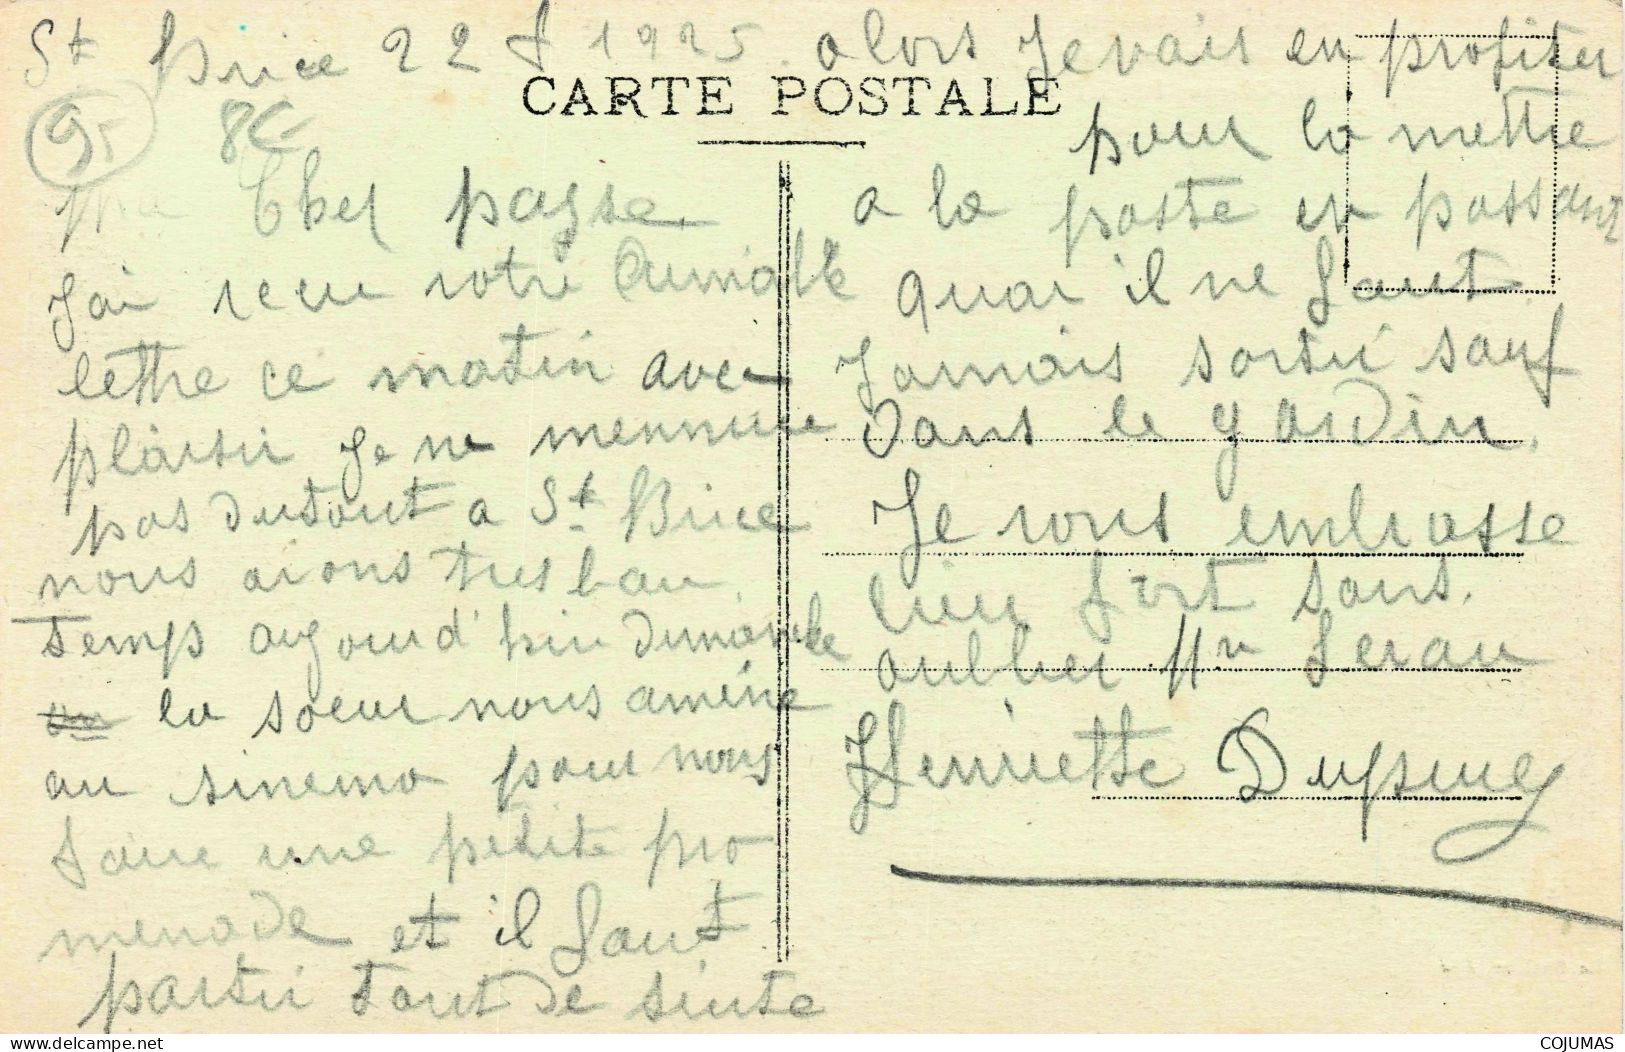 St Brice 22 1925
CARTE POSTALE
95
8€
Ma Cher paysse
J'ai recu votre aumable
lettre ce matin avec
plaisir Je ne mennuie
pas dutout a St Brice
nous avions tres bau
temp aujourd'hui dimanche
la soeur nous amène
au sinema pour nous
faire une petite pro
menade et il faut
partir tout de suite
alors Je vais en profiter
pour la mettre
a la poste en passant
quar il ne faut
Jamais sortir sauf
dans le gardin.
Je vous embrasse
bien fort sans
oublier Mr
Henriette
COJUMAS
www.delcampe.net